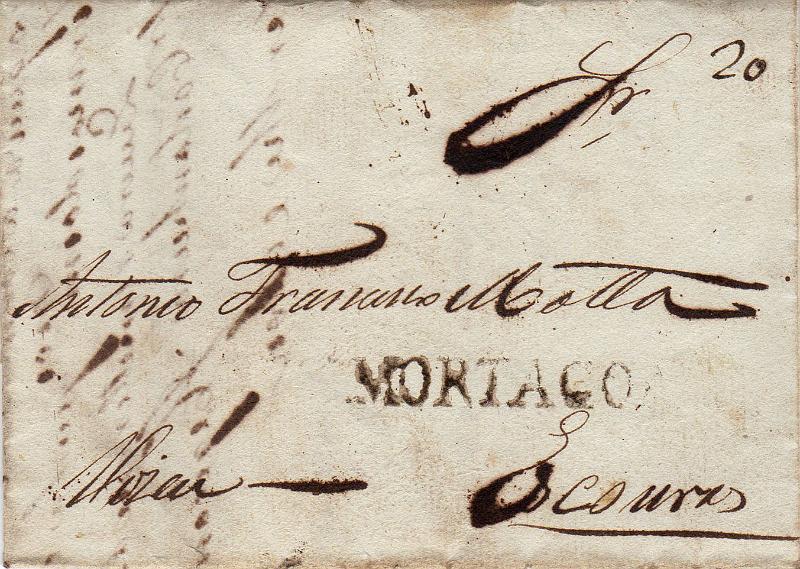 Sr 20
Antonio Francisco Motta
MORTAGOA
Escouras